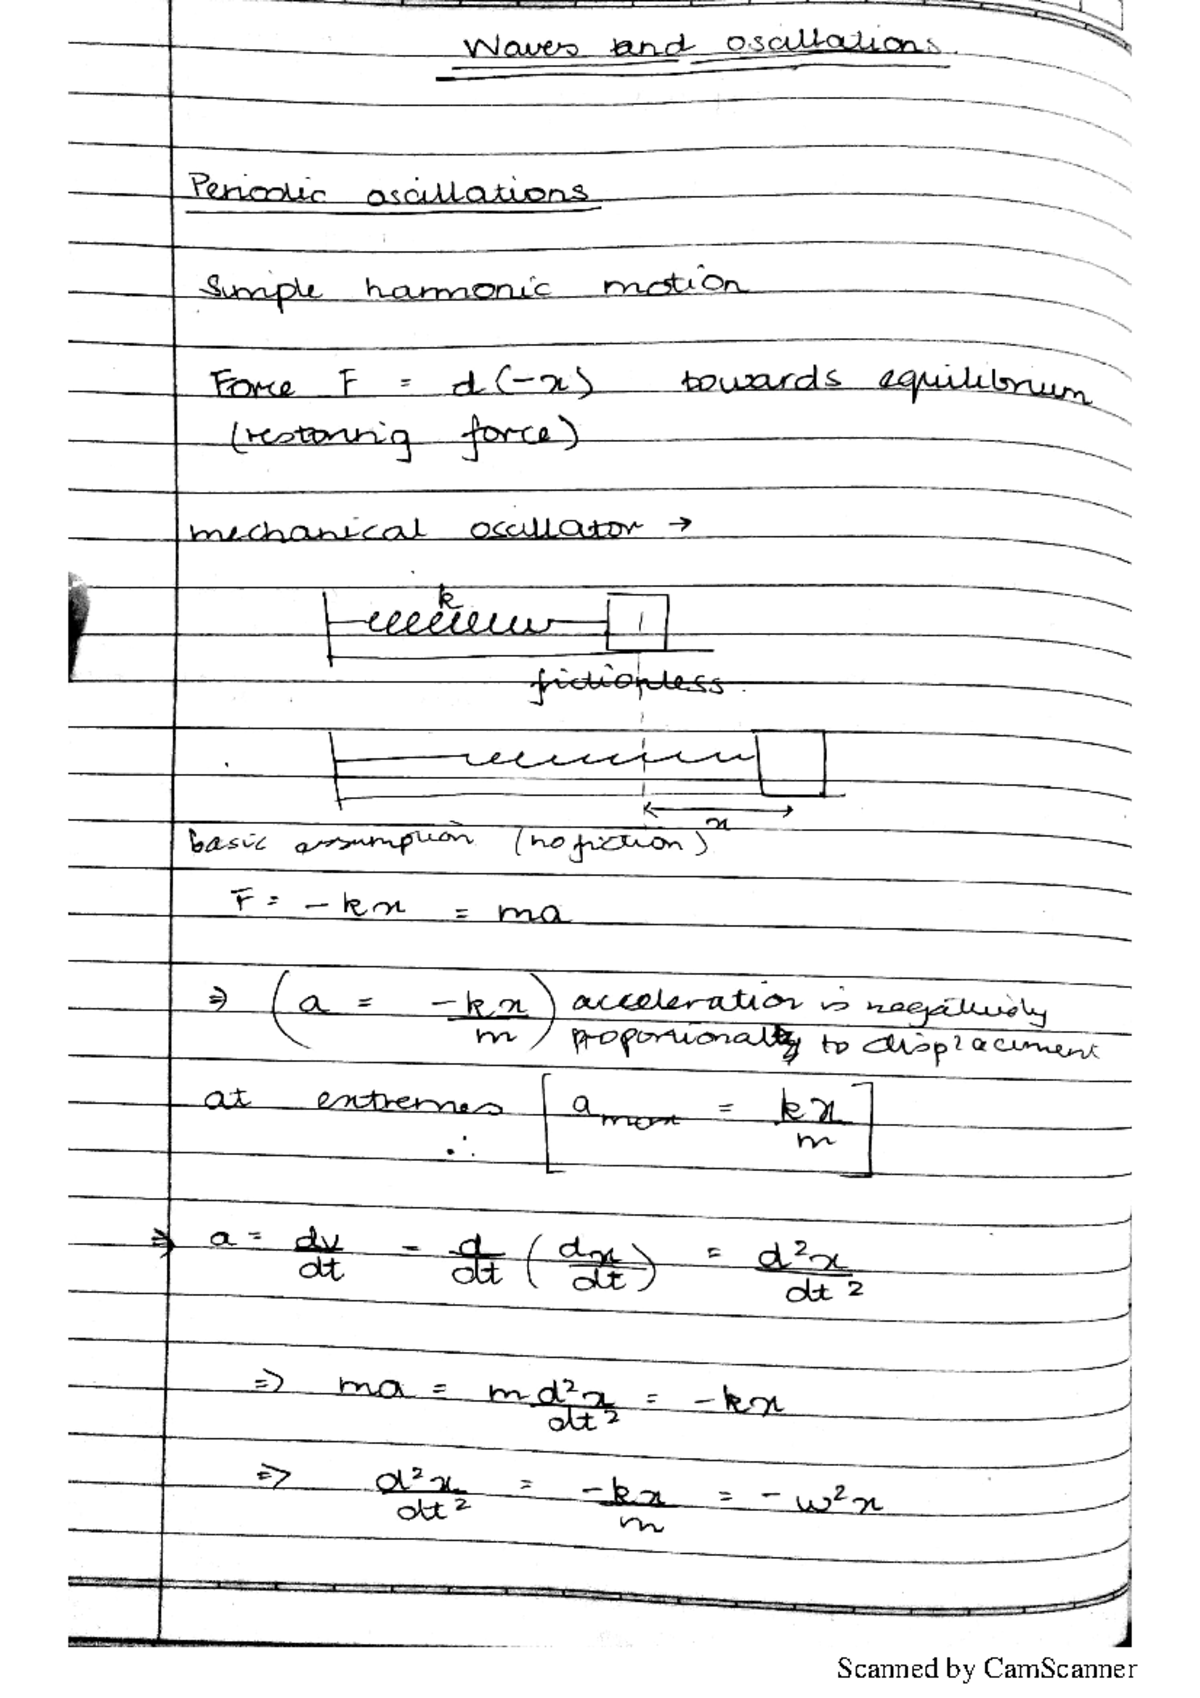 Waves and oscillations.
Periodic oscillations
Simple harmonic motion
Force F = d(-x) towards equilibrium
(restoring force)
mechanical oscillator →
k
frictionless
x
basic assumption (no friction)
F = -kx = ma
⇒ (a = -kx/m) acceleration is negatively
proportionally to displacement
at extremes [a_max = kx/m]
∴
⇒ a = dv/dt = d/dt (dx/dt) = d²x/dt²
⇒ ma = m d²x/dt² = -kx
⇒ d²x/dt² = -kx/m = -w²x
Scanned by CamScanner